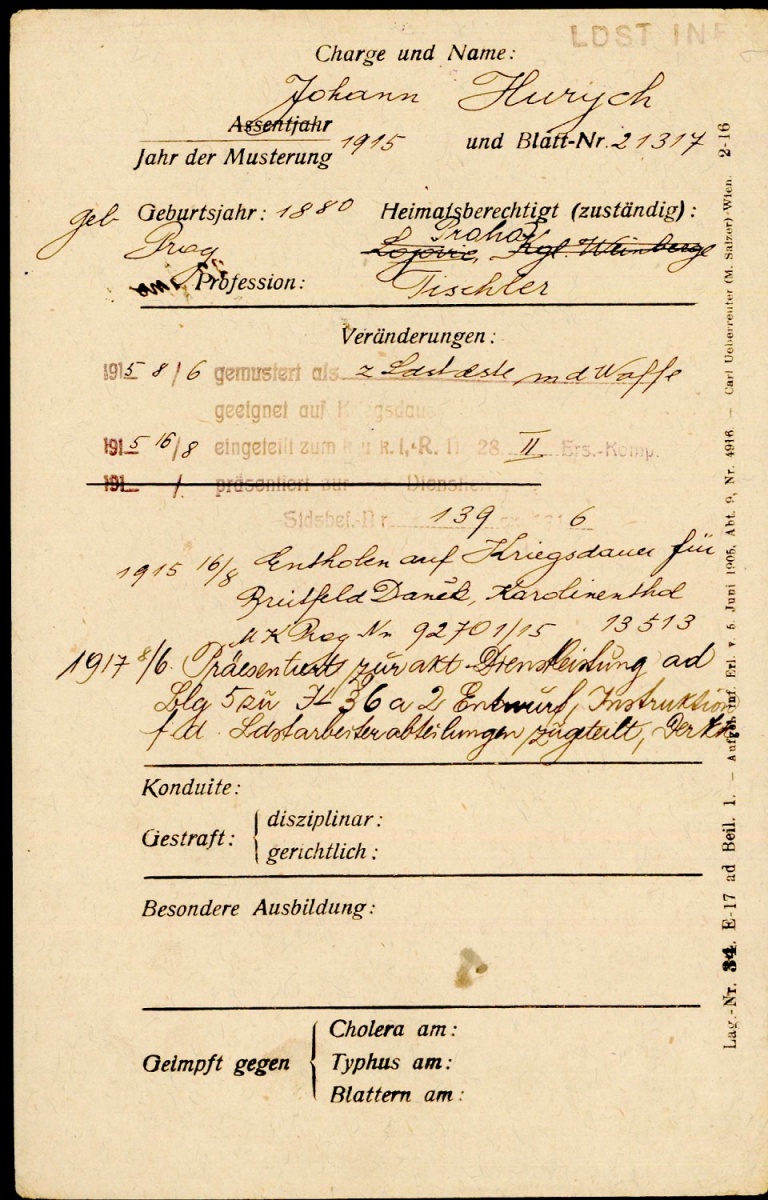 LDST INF
Charge und Name:
Johann Hurych
Assentjahr
Jahr der Musterung 1915 und Blatt-Nr. 21317
geb Geburtsjahr: 1880 Heimatsberechtigt (zuständig):
Praha
Prag Lojovic, Kgl. Weinberge
Profession: Tischler
Veränderungen:
1915 8/6 gemustert als z Ldstdste m d Waffe
geeignet auf Kriegsdauer
1915 16/8 eingeteilt zum k. u. k. I.-R. N 28 II Ers.-Komp.
191 / präsentiert zur Dienstleistung
Stdsbef.-Nr. 139 6
1915 16/8 Enthoben auf Kriegsdauer für
Breitfeld Daněk, Karolinenthal
MK Prag No 92701/15 13513
1917 8/6. Präsentiert zur akt Dienstleistung ad
Blg 5 zu 36 a 2 Entwurf, Instruktion
f. d. Ldstarbeiterabteilungen zugeteilt,
Konduite:
Gestraft: disziplinar:
gerichtlich:
Besondere Ausbildung:
Geimpft gegen Cholera am:
Typhus am:
Blattern am:
Lag.-Nr. 34. E-17 ad Beil. 1. — Aufgel. mit Erl. v. 5. Juni 1905, Abt. 9, Nr. 4916. — Carl Ueberreuter (M. Salzer), Wien. 2-16